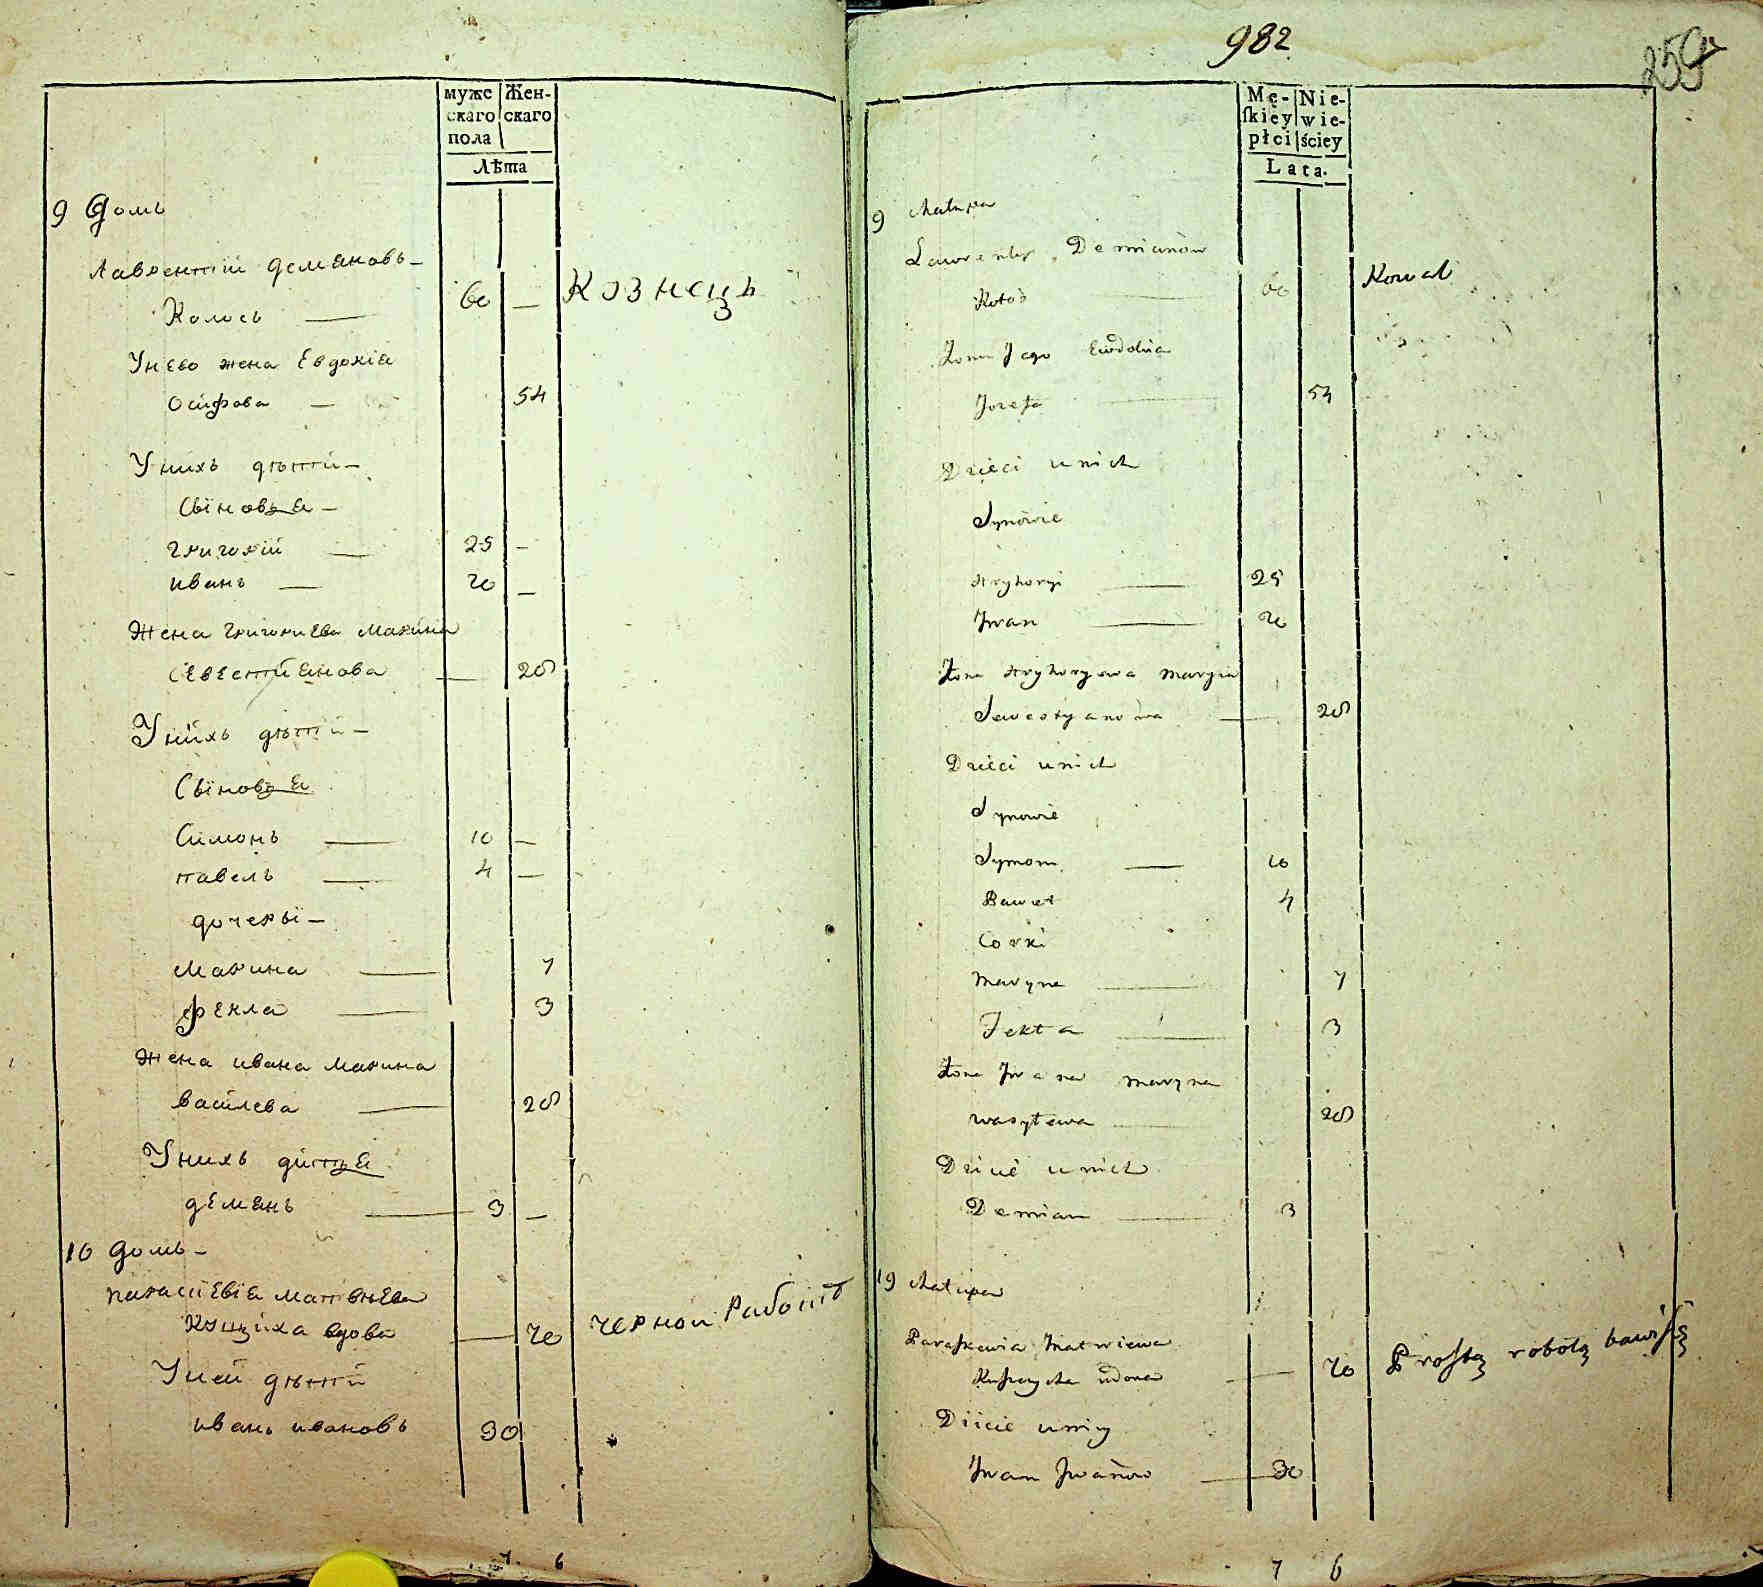 муже Жен-
скаго скаго
пола
Лѣта
9 Домъ
Лаврентий Демяновъ
Колосъ — 60 — Кознецъ
Унево жена Евдокія
Осифова — 54
Унихъ дѣти
Сыновья
Григорий — 25 —
иванъ — 20 —
Жена Григориева Марина
Севестиянова — 28
Унихъ дѣти
Сыновья
Симонъ — 10 —
павелъ — 4 —
дочеры
Марина — 7
Фекла — 3
Жена ивана Марина
василева — 28
Унихъ дитя
демянъ — 3 —
10 Домъ
параскевія матвѣева
вдова — 70 черной работѣ
Уней дѣти
иванъ ивановъ 30
7 6
982
259
Mę- Nie-
ſkiey wie-
płci ściey
Lata.
9 Chałupa
Laurenty Demianow
Kołos — 60 Kowal
Żona Jego Ewdokia
Jozefa — 54
Dzieci unich
Synowie
Hryhoryi — 25
Jwan — 20
Żona Hryhorowa Maryna
Sewestyanowa — 28
Dzieci unich
Synowie
Symon — 10
Paweł 4
Corki
Maryna — 7
Fekła — 3
Żona Jwana Maryna
Wasylewa — 28
Dzicie unich
Demian — 3
19 Chałupa
Paraſkewia Matwiewa
udowa — 70 Proſtą robotą bawiſię
Dzicie uniey
Jwan Jwanow — 30
7 6